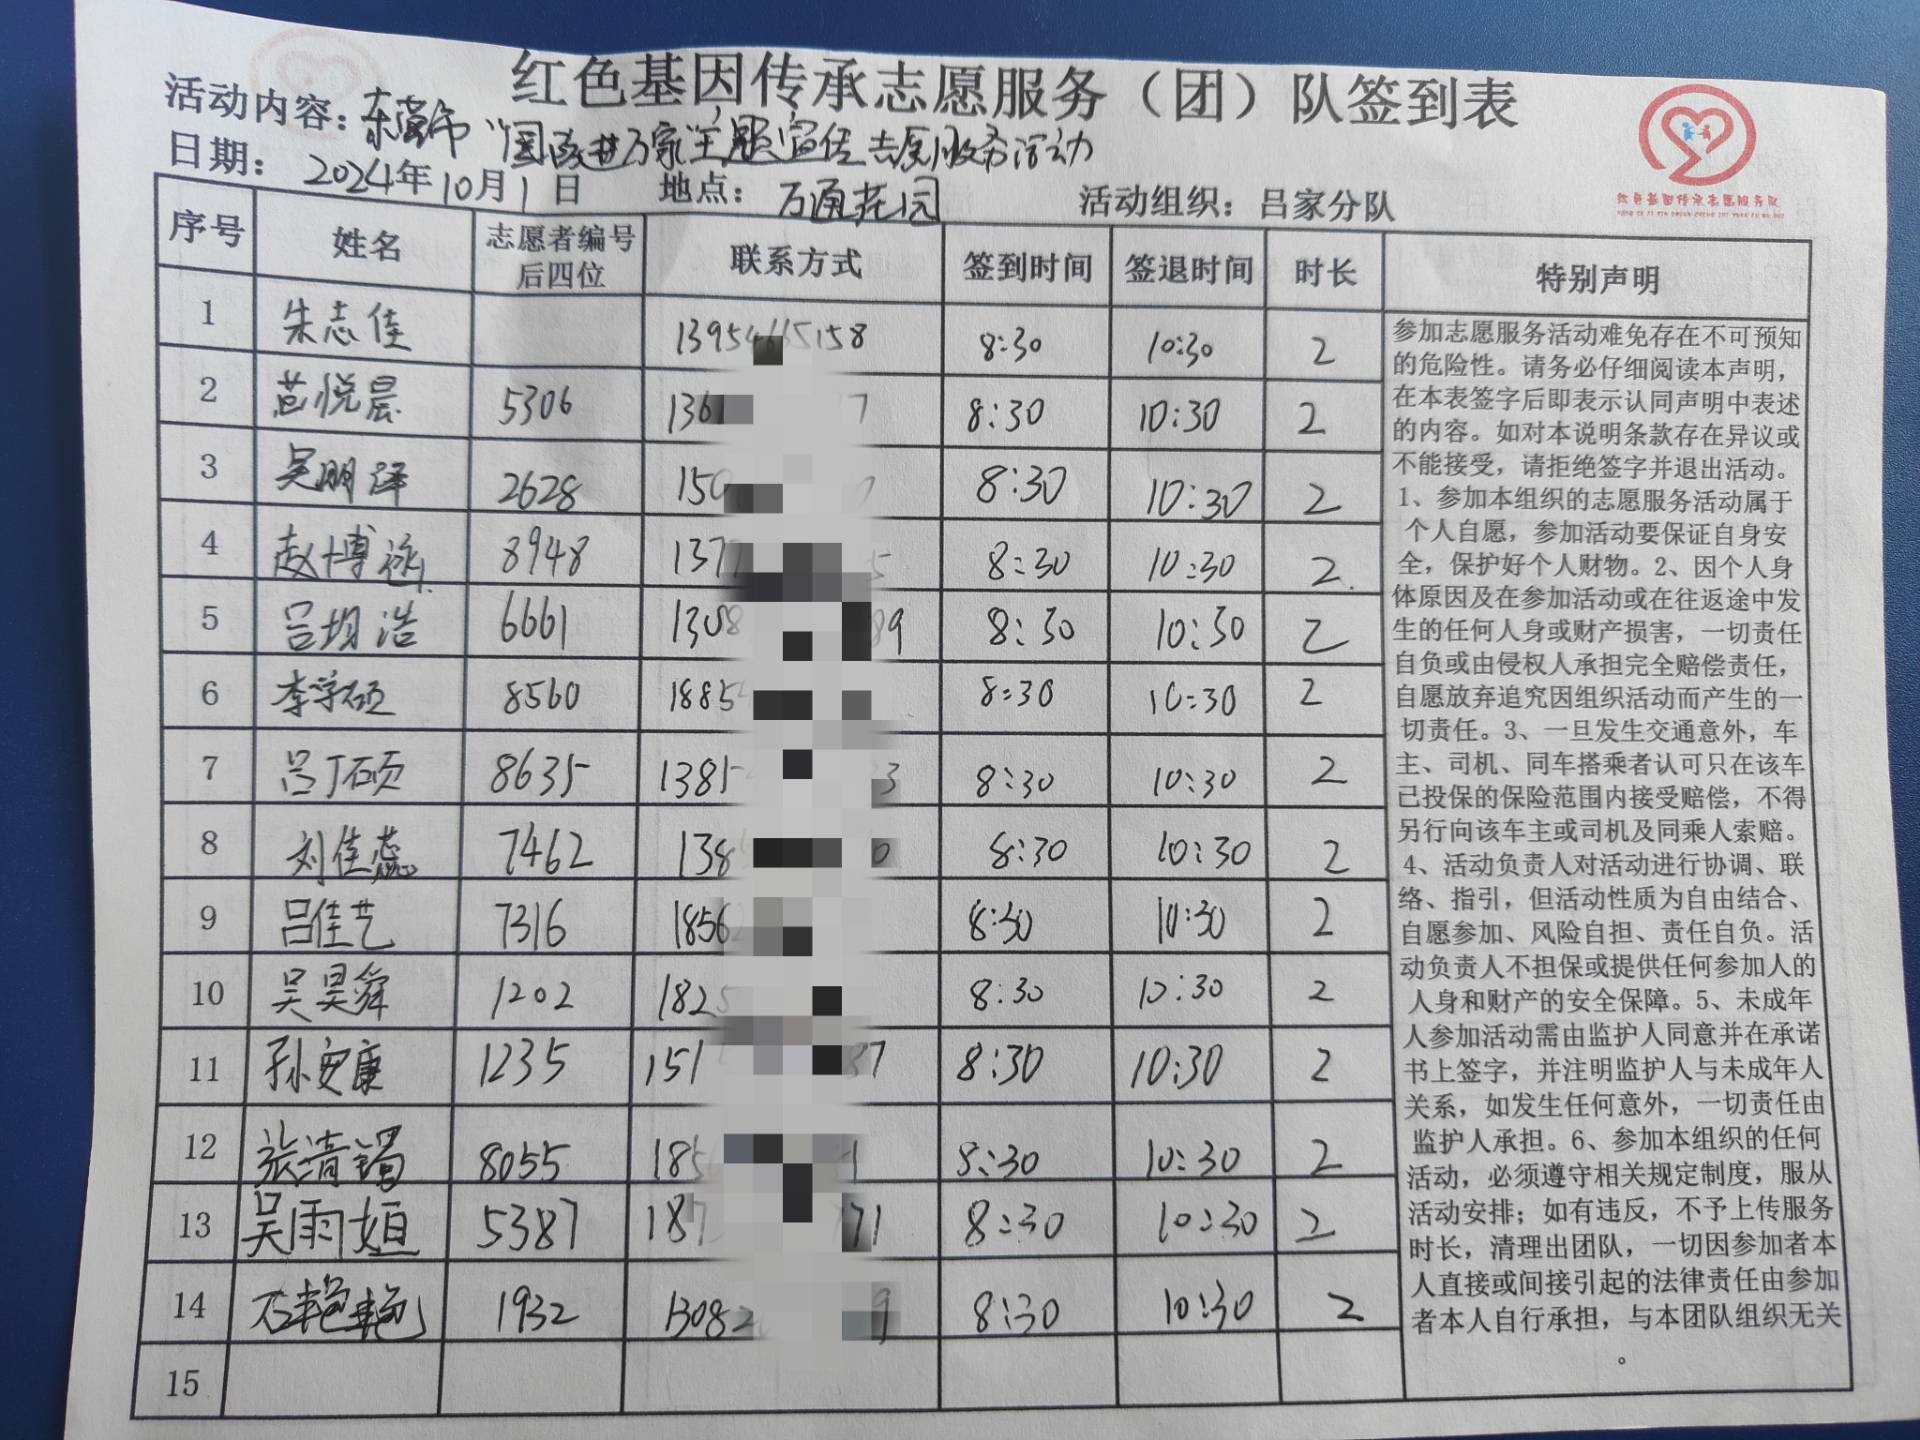 红色基因传承志愿服务（团）队签到表
活动内容：东营市“国防进万家”主题宣传志愿服务活动
日期：2024年10月1日 地点：万通花园 活动组织：吕家分队
红色基因传承志愿服务队
序号 姓名 志愿者编号后四位 联系方式 签到时间 签退时间 时长 特别声明
1 朱志佳 8:30 10:30 2
2 范悦晨 5306 136 7 8:30 10:30 2
3 吴明泽 2628 150 8:30 10:30 2
4 赵博涵 8948 137 5 8:30 10:30 2
5 吕明浩 6661 1308 89 8:30 10:30 2
6 李学硕 8560 1885 8:30 10:30 2
7 吕丁硕 8635 1385 3 8:30 10:30 2
8 刘佳蕊 7462 138 0 8:30 10:30 2
9 吕佳艺 7316 1856 8:30 10:30 2
10 吴昊舜 1202 182 8:30 10:30 2
11 孙安康 1235 151 37 8:30 10:30 2
12 张清 8055 185 1 8:30 10:30 2
13 吴雨 5387 187 71 8:30 10:30 2
14 石艳艳 1932 13082 9 8:30 10:30 2
15
参加志愿服务活动难免存在不可预知
的危险性。请务必仔细阅读本声明，
在本表签字后即表示认同声明中表述
的内容。如对本说明条款存在异议或
不能接受，请拒绝签字并退出活动。
1、参加本组织的志愿服务活动属于
个人自愿，参加活动要保证自身安
全，保护好个人财物。2、因个人身
体原因及在参加活动或在往返途中发
生的任何人身或财产损害，一切责任
自负或由侵权人承担完全赔偿责任，
自愿放弃追究因组织活动而产生的一
切责任。3、一旦发生交通意外，车
主、司机、同车搭乘者认可只在该车
已投保的保险范围内接受赔偿，不得
另行向该车主或司机及同乘人索赔。
4、活动负责人对活动进行协调、联
络、指引，但活动性质为自由结合、
自愿参加、风险自担、责任自负。活
动负责人不担保或提供任何参加人的
人身和财产的安全保障。5、未成年
人参加活动需由监护人同意并在承诺
书上签字，并注明监护人与未成年人
关系，如发生任何意外，一切责任由
监护人承担。6、参加本组织的任何
活动，必须遵守相关规定制度，服从
活动安排；如有违反，不予上传服务
时长，清理出团队，一切因参加者本
人直接或间接引起的法律责任由参加
者本人自行承担，与本团队组织无关
。